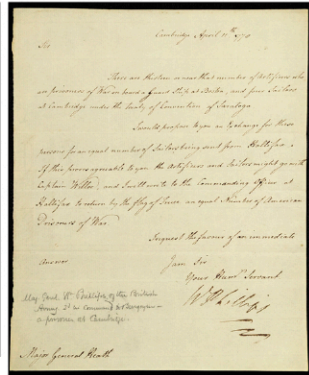 Cambridge April 11th 1778
Sir
There are thirteen or near that number of Artificers who
are prisoners of War on board a Guard Ship at Boston, and four Sailors
at Cambridge under the Treaty of Convention of Saratoga
I would propose to you an Exchange for these
persons for an equal number of Sailors being sent from Hallifax.
If this prove agreeable to you the Artificers and Sailors might go with
Captain and I will write to the Commanding Officer at
Hallifax to return by the Flag of Truce an equal Number of American
Prisoners of War.
I request the favor of an immediate
answer
I am Sir
Your Hum: Servant
W Phillips
Maj Genl Wm Phillips of the British
Army 2d in Command to Burgoyne
a prisoner at Cambridge.
Major General Heath